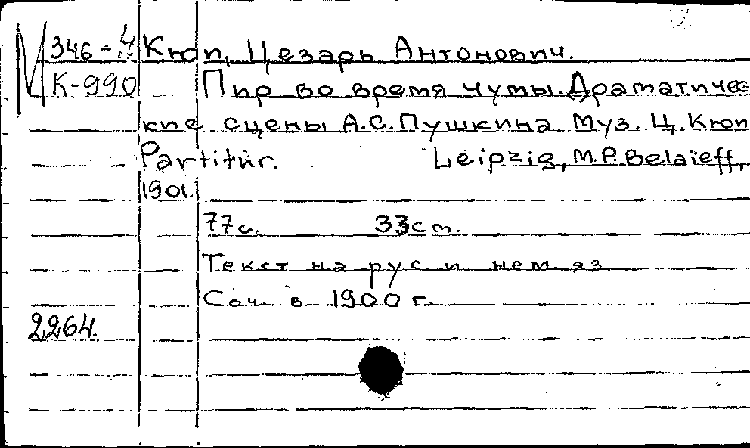 М 346-4 Кюи, Цезарь Антонович.
К-990 Пир во время чумы. Драматичес-
кие сцены А.С.Пушкина. Муз. Ц.Кюи
Partitur. Leipzig, M.P.Belaieff,
1901.
77с. 33см.
Текст на рус и нем яз
Соч. в 1900 г.
2264.